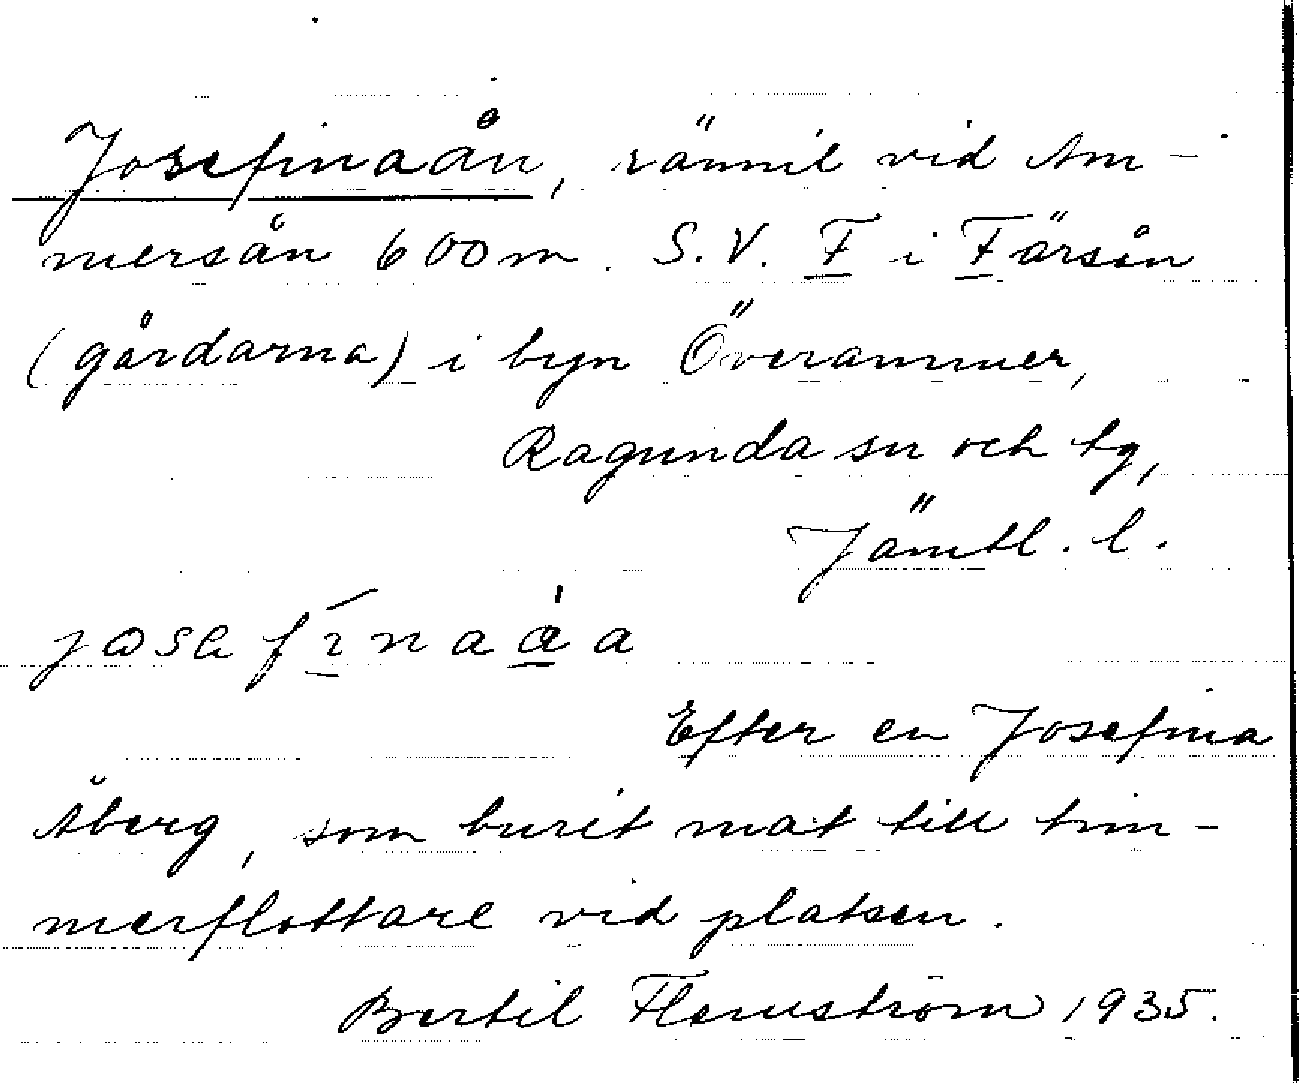 Josefinaån, rännil vid Am-
mersån 600 m. S.V. F i Färsån
(gårdarna) i byn Överammer,
Ragunda sn och tg,
Jämtl. l.
Efter en Josefina
Åberg, som burit mat till tim-
merflottare vid platsen.
Bertil Flemström 1935.